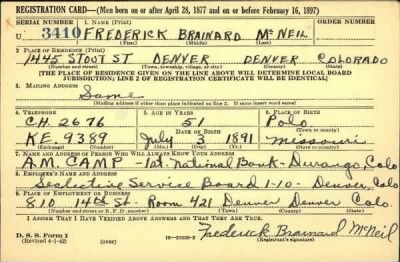 REGISTRATION CARD—(Men born on or after April 28, 1877 and on or before February 16, 1897)
SERIAL NUMBER 1. NAME (Print) ORDER NUMBER
U. 3410 FREDERICK BRAINARD McNEIL
(First) (Middle) (Last)
2. PLACE OF RESIDENCE (Print)
1445 STOUT ST DENVER DENVER COLORADO
(Number and street) (Town, township, village, or city) (County) (State)
[THE PLACE OF RESIDENCE GIVEN ON THE LINE ABOVE WILL DETERMINE LOCAL BOARD
JURISDICTION; LINE 2 OF REGISTRATION CERTIFICATE WILL BE IDENTICAL]
3. MAILING ADDRESS
Same
[Mailing address if other than place indicated on line 2. If same insert word same]
4. TELEPHONE 5. AGE IN YEARS 6. PLACE OF BIRTH
CH. 2676 51 Polo
DATE OF BIRTH (Town or county)
KE 9389 July 3 1891 Missouri
(Exchange) (Number) (Mo.) (Day) (Yr.) (State or country)
7. NAME AND ADDRESS OF PERSON WHO WILL ALWAYS KNOW YOUR ADDRESS
A.M. CAMP - 1st. National Bank - Durango, Colo
8. EMPLOYER'S NAME AND ADDRESS
Selective Service Board 1-10 - Denver, Colo
9. PLACE OF EMPLOYMENT OR BUSINESS
810 14th St. Room 421 Denver Denver Colo.
(Number and street or R. F. D. number) (Town) (County) (State)
I AFFIRM THAT I HAVE VERIFIED ABOVE ANSWERS AND THAT THEY ARE TRUE.
D. S. S. Form 1
(Revised 4-1-42) (over) Frederick Brainard McNeil
(Registrant's signature)